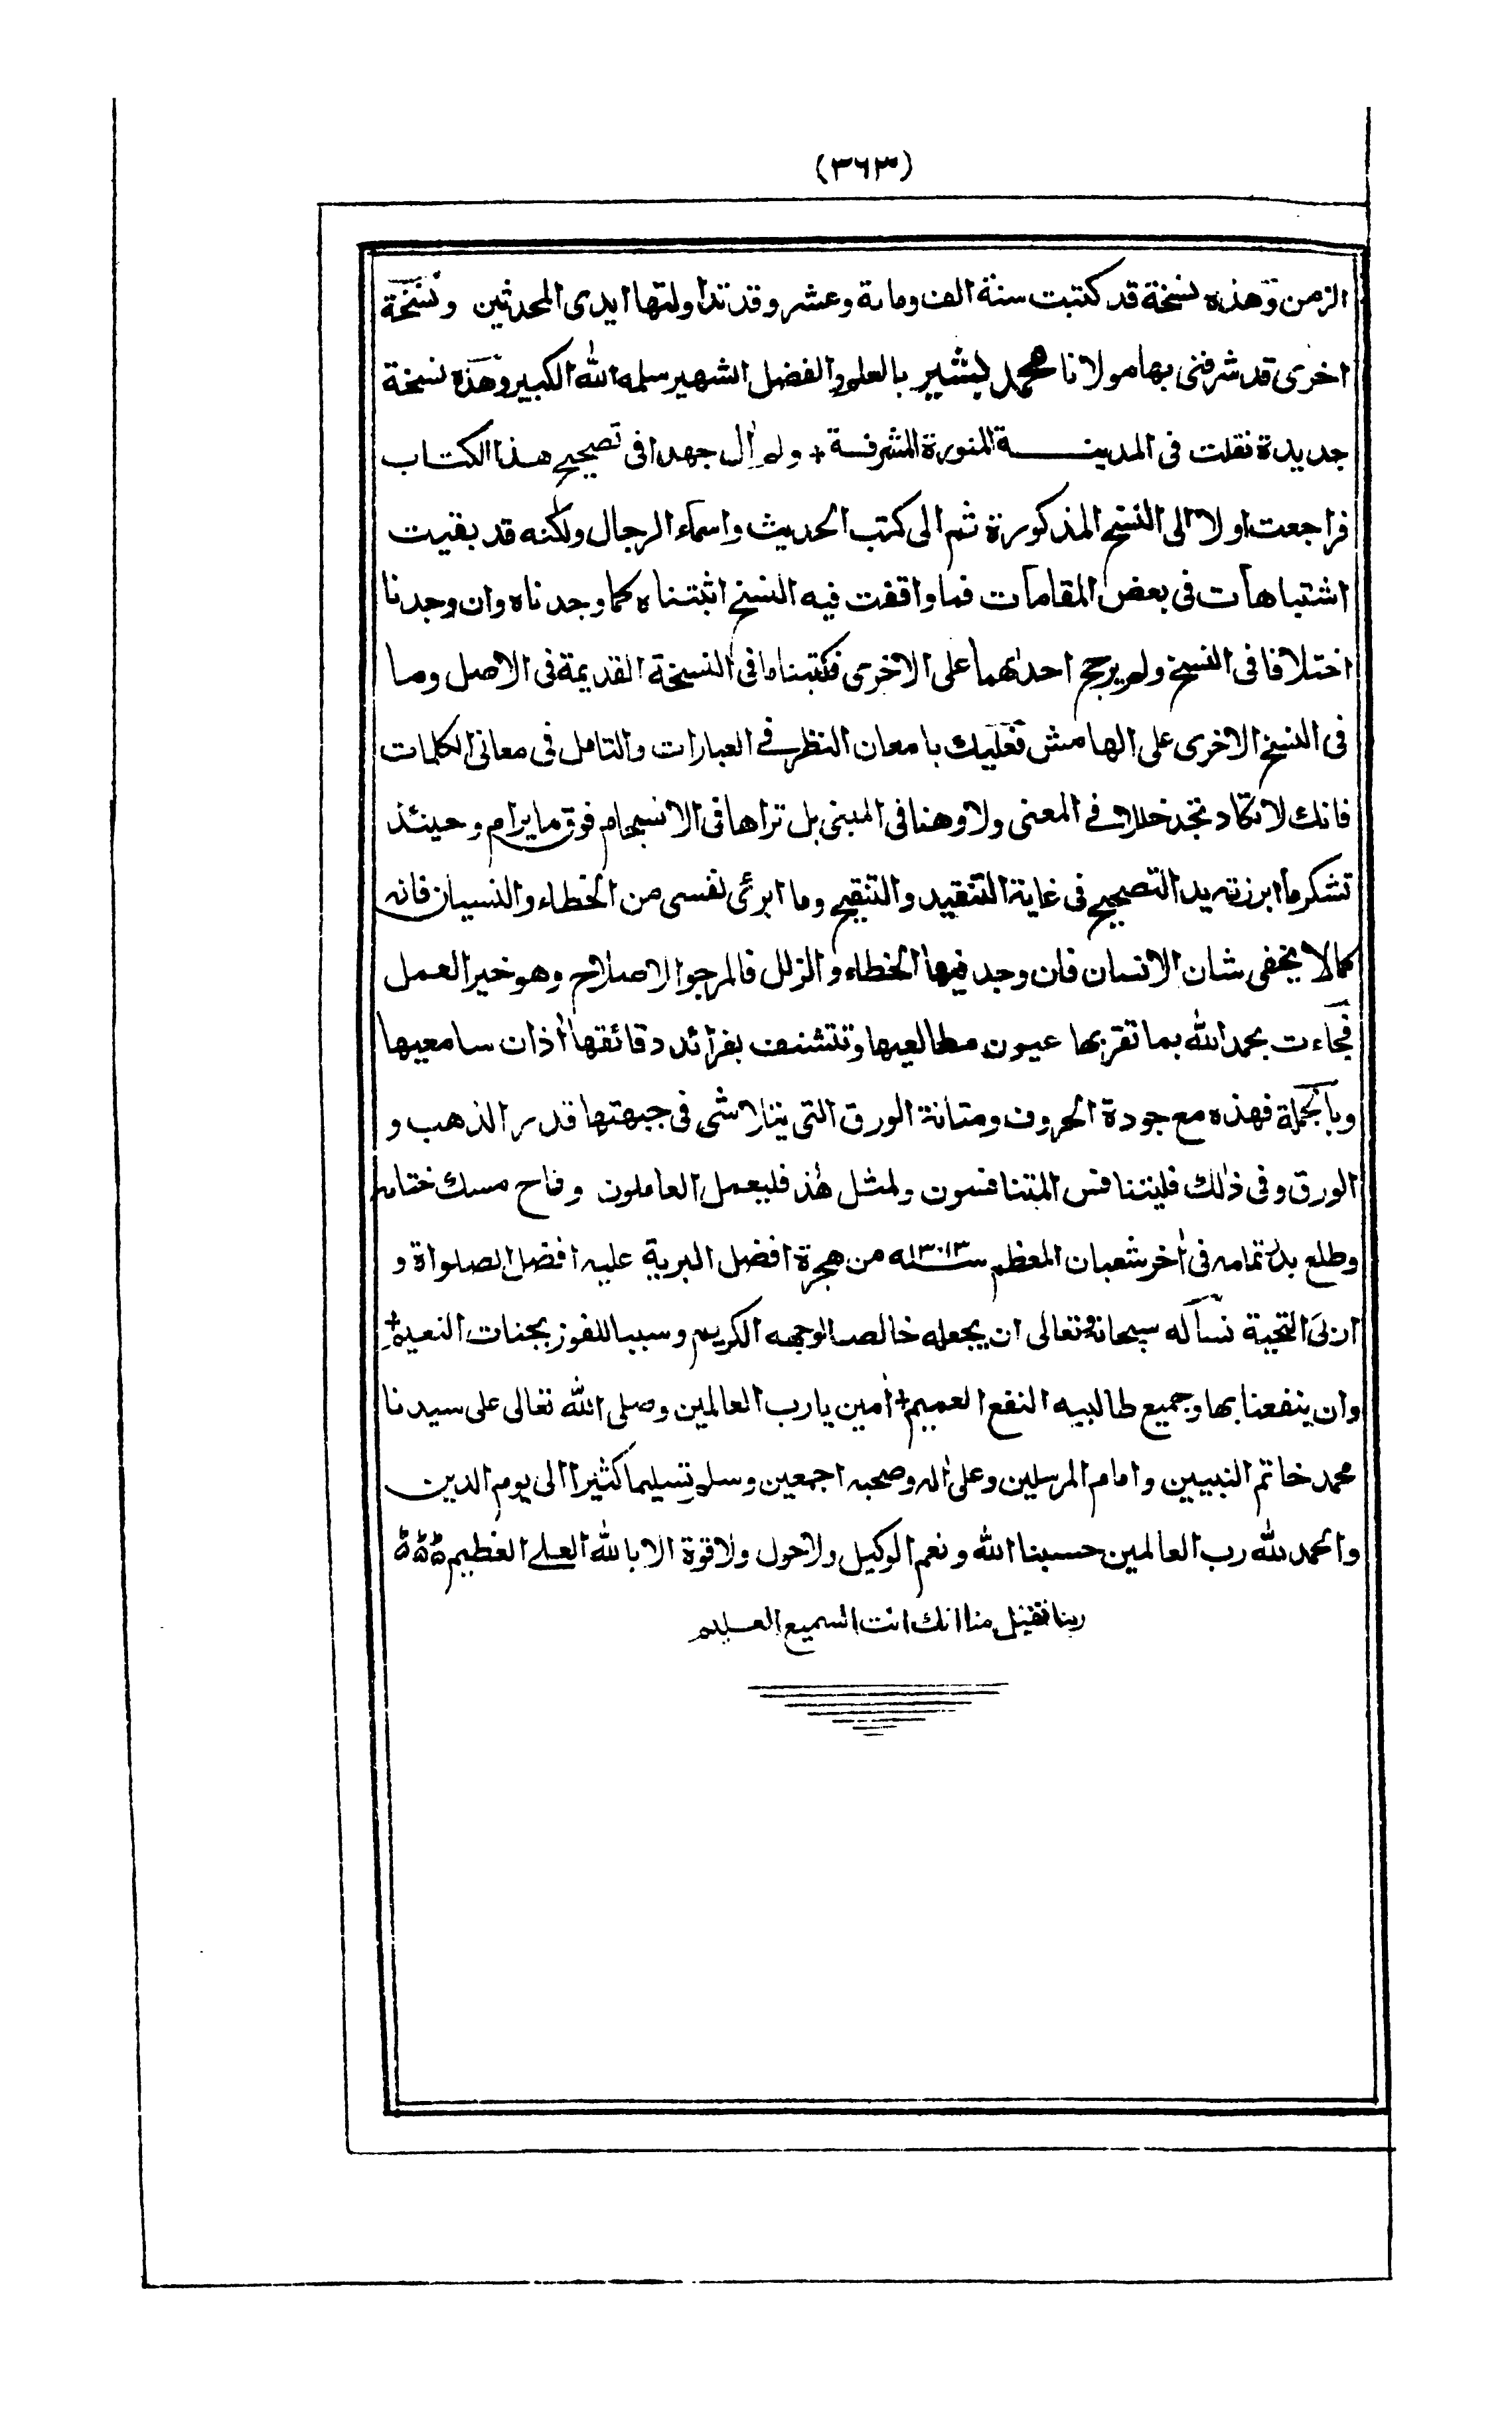 (٣٦٣)
الزمن وهذه نسخة قد كتبت سنة الف ومائة وعشر وقد تداولتها ايدى المحدثين ونسخة
اخرى قد شرفنى بها مولانا محمد بشير بالعلم والفضل الشهير سلمه الله الكبير وهذه نسخة
جديدة نقلت فى المدينة المنورة المشرفة + ولم اٰل جهدا فى تصحيح هذا الكتاب
فراجعت اولا الى النسخ المذكورة ثم الى كتب الحديث واسماء الرجال ولكنه قد بقيت
اشتباهات فى بعض المقامات فما وافقت فيه النسخ اثبتناه كما وجدناه وان وجدنا
اختلافا فى النسخ ولم يرجح احدٰهما على الاخرى فكتبنا ما فى النسخة القديمة فى الاصل وما
فى النسخ الاخرى على الهامش فعليك بامعان النظر فى العبارات والتامل فى معانى الكلمات
فانك لا تكاد تجد خللا فى المعنى ولا وهنا فى المبنى بل تراها فى الانسجام فوق ما يرام وحينئذ
تشكر ما ابرزته يد التصحيح فى غاية التنقيد والتنقيح وما ابرئ نفسى من الخطاء والنسيان فانه
كما لا يخفى شان الانسان فان وجد فيها الخطاء والزلل فالمرجو الاصلاح وهو خير العمل
فجاءت بحمد الله بما تقر بها عيون مطالعيها وتتشنف بفرائد دقائقها اٰذان سامعيها
وبالجملة فهذه مع جودة الحروف ومتانة الورق التى يتلاشى فى جبهتها قدر الذهب و
الورق وفى ذٰلك فليتنافس المتنافسون ولمثل هٰذ فليعمل العاملون وفاح مسك ختامه
وطلع بدر تمامه فى اٰخر شعبان المعظم سنه ١٣٠١٣ من هجرة افضل البرية عليه افضل الصلواة و
ازكى التحية نسأله سبحانه وتعالى ان يجعله خالصا لوجهه الكريم وسببا للفوز بجنات النعيم +
وان ينفعنا بها وجميع طالبيه النفع العميم + اٰمين يا رب العالمين وصلى الله تعالى على سيدنا
محمد خاتم النبيين وامام المرسلين وعلى اٰله وصحبه اجمعين وسلم تسليما كثيرا الى يوم الدين
والحمد لله رب العالمين حسبنا الله ونعم الوكيل ولا حول ولا قوة الا بالله العلى العظيم
ربنا تقبل منا انك انت السميع العليم